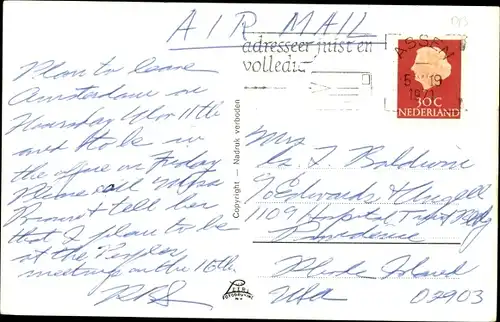 AIR MAIL
adresseer juist en
volledig
ASSEN
5 19
1971
30 C
NEDERLAND
Plan to leave
Amsterdam on
Thursday Nov 11th
and to be in
the office on Friday
Please call
+ tell her
that I plan to be
at the
meeting on the 16th.
RBS
Copyright — Nadruk verboden
Mrs
L Baldwin
Edwards & Angell
1109 Hospital Trust Bldg
Providence
Rhode Island
USA 02903